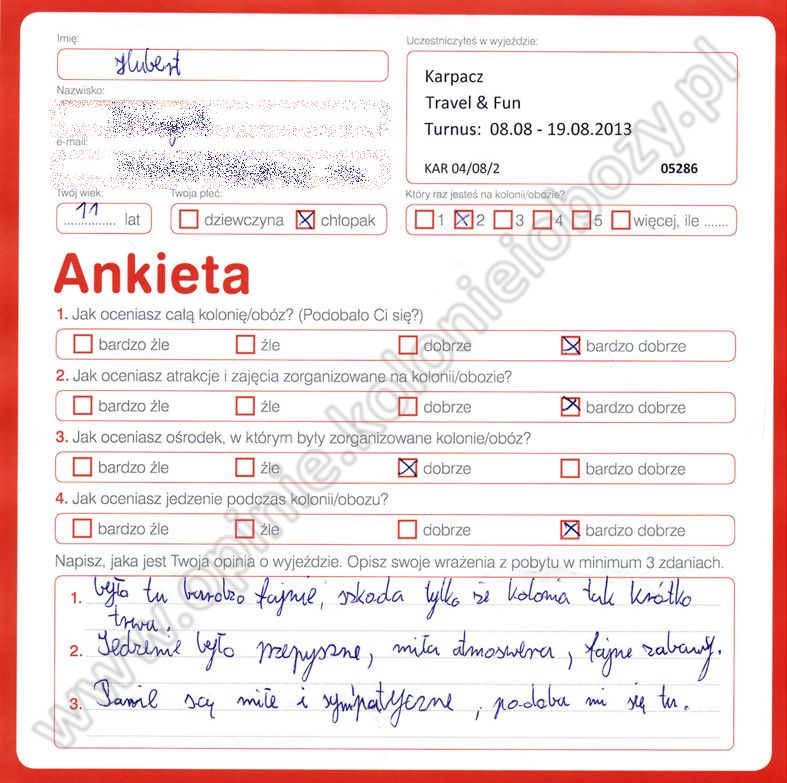 Imię:
Hubert
Uczestniczyłeś w wyjeździe:
Karpacz
Travel & Fun
Turnus: 08.08 - 19.08.2013
KAR 04/08/2 05286
Nazwisko:
e-mail:
Twój wiek:
11 lat
Twoja płeć:
dziewczyna chłopak
Który raz jesteś na kolonii/obozie?
1 2 3 4 5 więcej, ile .......
Ankieta
1. Jak oceniasz całą kolonię/obóz? (Podobało Ci się?)
bardzo źle źle dobrze bardzo dobrze
2. Jak oceniasz atrakcje i zajęcia zorganizowane na kolonii/obozie?
bardzo źle źle dobrze bardzo dobrze
3. Jak oceniasz ośrodek, w którym były zorganizowane kolonie/obóz?
bardzo źle źle dobrze bardzo dobrze
4. Jak oceniasz jedzenie podczas kolonii/obozu?
bardzo źle źle dobrze bardzo dobrze
Napisz, jaka jest Twoja opinia o wyjeździe. Opisz swoje wrażenia z pobytu w minimum 3 zdaniach.
1. było tu bardzo fajnie, szkoda tylko że kolonia tak krótko
trwa.
2. Jedzenie było przepyszne, miła atmoswera, fajne zabawy.
3. Panie są miłe i sympatyczne, podoba mi się tu.
www.opinie.kolonieiobozy.pl